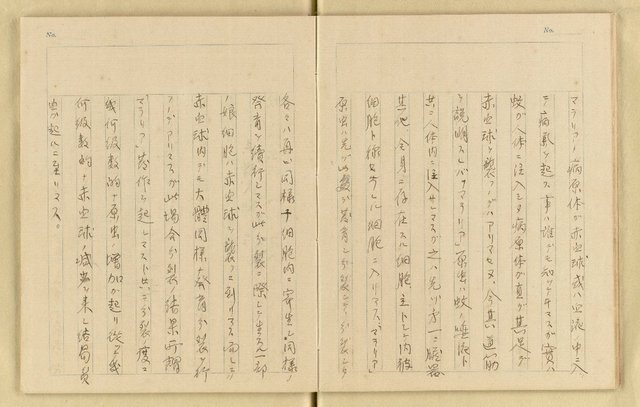 No.
マラリアノ病原体ガ赤血球或ハ血液中ニ入
テ病気ヲ起ス事ハ誰デモ知ッテ井マスガ實ハ
蚊ガ人体ニ注入シタ病原体ガ直ガ其足ガ
赤血球ヲ襲フノデハアリマセヌ、今其道筋
ヲ説明スレバ「マラリア」原虫ハ蚊ノ唾液ト
共ニ人体内ニ注入サレマスガ之ハ先ヅ第一ニ臓器
其他全身ニ存在スル細胞主トシテ内被
細胞ト称セラレル細胞ニ入リマス「マラリア」
原虫ハ先ヅ此処デ発育シ分裂シテ
No.
各々ハ再ビ同様ナ細胞内ニ寄生シ同様ノ
発育ヲ續行シマスガ此分裂ニ際シテ生ズル一部
ノ娘細胞ハ赤血球ヲ襲フニ到リマス而シテ
赤血球内デモ大體同様ナ発育分裂ヲ行
フノデアリマスガ此場合分裂ノ結果所謂
マラリアノ発作ヲ起シマスト共ニ分裂ノ度ニ
幾何級数的ナ原虫ノ増加ガ起リ從ッテ幾
何級数的ナ赤血球ノ減少ヲ来シ結局貧
血ヲ起スニ至リマス。